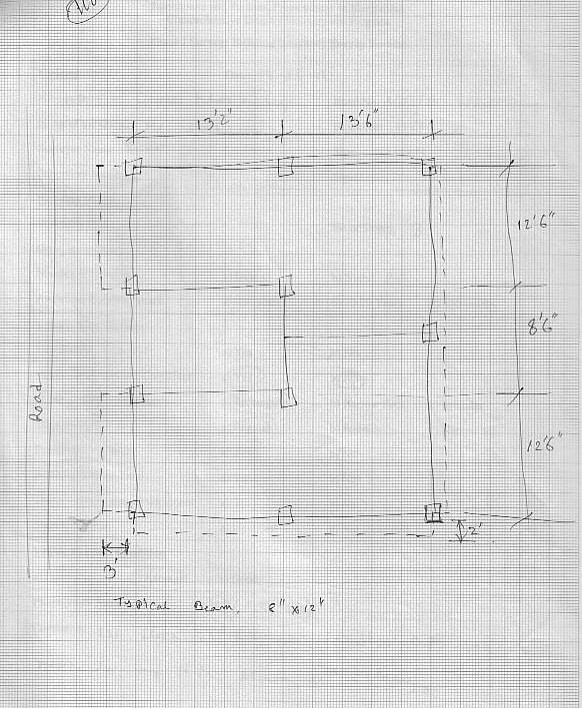 13'2" 13'6"
12'6"
8'6"
Road
12'6"
2'
3'
Typical Beam. 8" x 12"